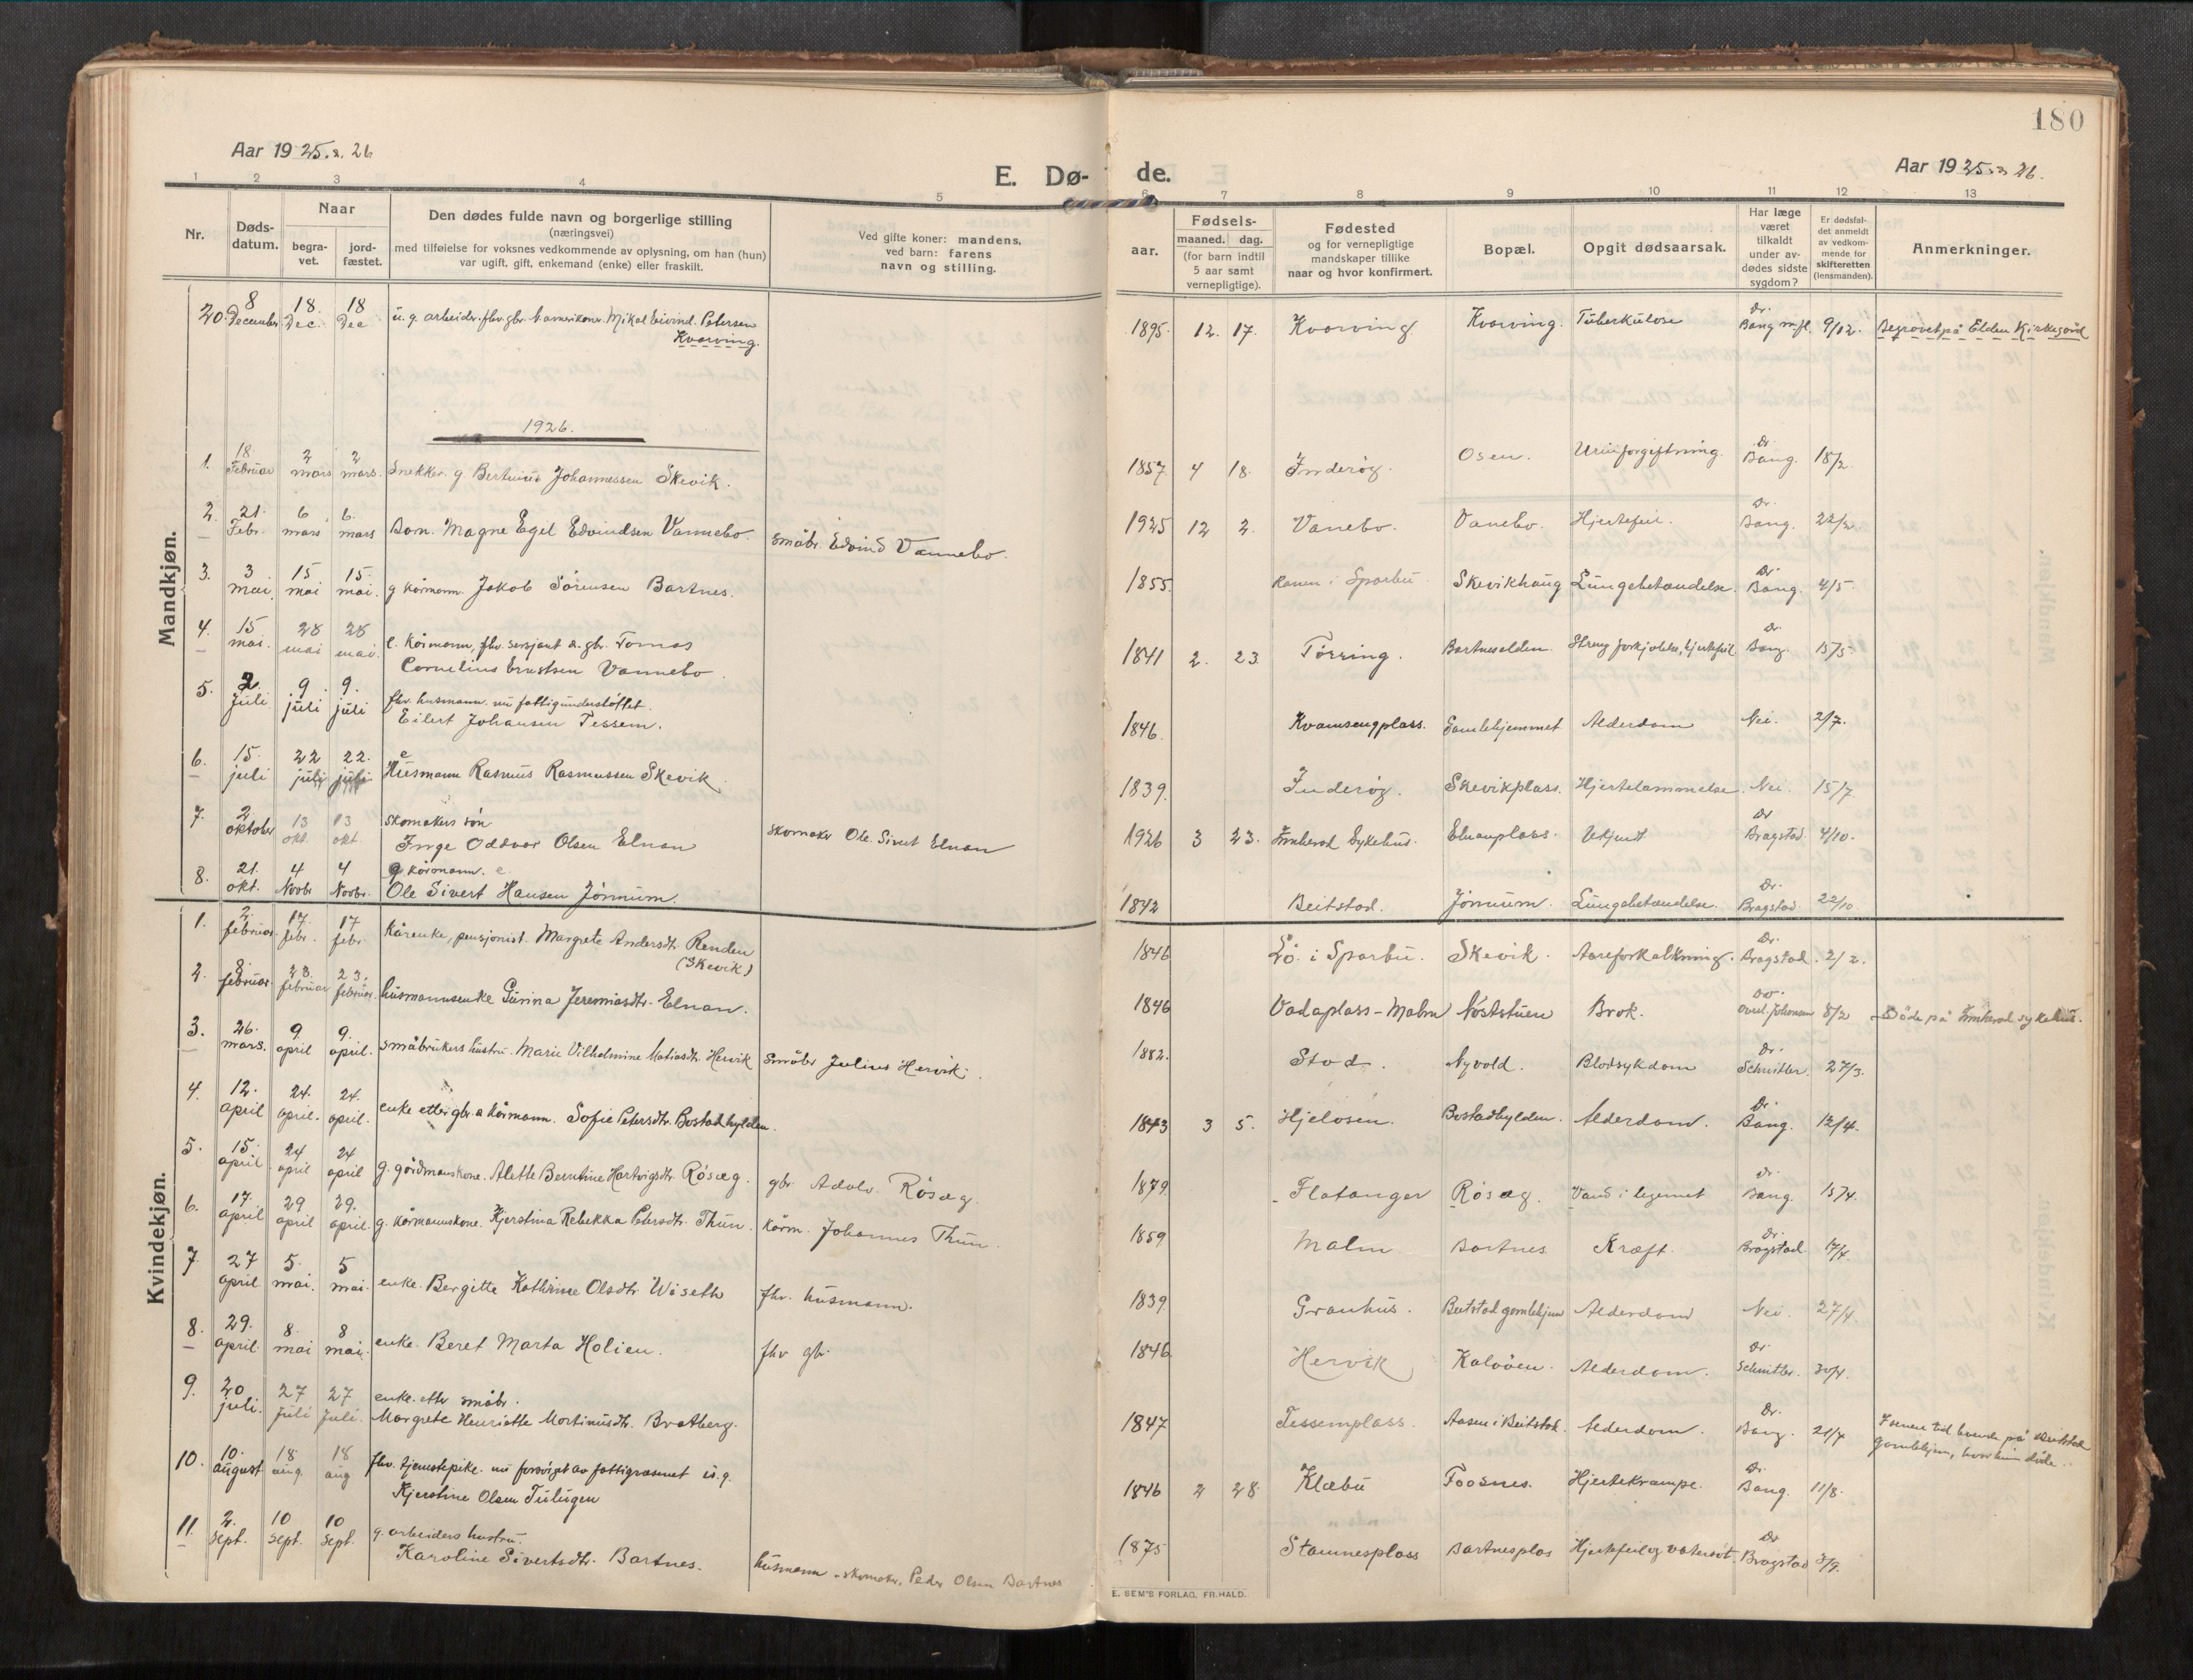 180
Aar 1925 & 26
E. Dø-
de.
Aar 1925 & 26.
1 2 3 4 5 6 7 8 9 10 11 12 13
Nr.
Døds-
datum.
Naar
begra-
vet.
jord-
fæstet.
Den dødes fulde navn og borgerlige stilling
(næringsvei)
med tilføielse for voksnes vedkommende av oplysning, om han (hun)
var ugift, gift, enkemand (enke) eller fraskilt.
Ved gifte koner: mandens,
ved barn: farens
navn og stilling.
Fødsels-
aar.
maaned.
dag.
(for barn indtil
5 aar samt
vernepligtige).
Fødested
og for vernepligtige
mandskaper tillike
naar og hvor konfirmert.
Bopæl.
Opgit dødsaarsak.
Har læge
været
tilkaldt
under av-
dødes sidste
sygdom?
Er dødsfal-
det anmeldt
av vedkom-
mende for
skifteretten
(lensmanden).
Anmerkninger.
Mandkjøn.
20. 8 December 18 Dec. 18 Dec u. g. arbeider, fhv. gbr. N. amerikaner. Mikal Eivind Petersen
Kvarving. 1895. 12. 17. Kvarving Kvarving. Tuberkulose Dr. Bang m.fl. 9/12. Begravet på Elden Kirkegård
1926.
1. 18 Februar 2 mars 2 mars. Snekker. g. Bertinus Johannessen Skevik. 1857 4 18. Inderøy. Osen. Urinforgiftning. Dr. Bang. 18/2.
2. 21. Febr. 6 mars 6. mars Barn. Magne Egel Edvindsen Vannebo. småbr. Edvind Vannebo. 1925 12 2. Vanebo. Vanebo. Hjertefeil. Dr. Bang. 22/2.
3. 3 mai. 15 mai 15. mai. g kårmann. Jakob Sørensen Bartnes. 1855. i Sparbu Skevikhaug Lungebetændelse. Dr. Bang. 4/5.
4. 15 mai. 28 mai 28 mai. e. kårmann, fhv. sersjant & gbr. Tomas
Cornelius Ernstsen Vannebo. 1841 2. 23. Tørring. Bartnesalden. Streng forkjølelse, hjertefeil Dr. Bang. 15/5
5. 2. Juli 9. juli 9. juli fhv. husmann. nu fattigunderstøttet.
Eilert Johansen Tessem. 1846. Kvamsengplass. Gamlehjemmet Alderdom Nei. 2/7.
6. 15. juli 22 juli 22. juli e Husmann Rasmus Rasmussen Skevik 1839. Inderøy. Skevikplass. Hjertelammelse. Nei. 15/7
7. 2 oktober 13 okt. 13 okt skomakers søn
Inge Oddvar Olsen Elnan skomaker Ole Sivert Elnan 1926 3 23. Innherad Sykehus. Elnanplass. Ukjent Dr Bragstad 4/10.
8. 21. okt. 4 Novbr 4 Novbr. g kårmann. e
Ole Sivert Hansen Jørnum. 1842 Beitstad. Jørnum. Lungebetændelse. Dr. Bragstad 22/10
Kvindekjøn.
1. 2 februar 17. febr. 17 febr. kårenke, pensjonist. Margrete Andersdtr. Renden
(Skevik) 1846 Lø. i Sparbu. Skevik. Aareforkalkning. Dr. Bragstad. 2/2.
2. 8. februar. 23. februar 23. februar. husmannsenke Gurina Jeremiasdtr. Elnan. 1846 Vadaplass - Malm Nøststuen Brok. Overl. Johansen 8/2 Døde på Innherad sykehus.
3. 26. mars. 9 april 9. april. småbrukers hustru. Marie Vilhelmine Matiasdtr. Hervik småbr Julius Hervik. 1882. Stod. Nyvold. Blodsykdom Dr. Schnitler. 27/3.
4. 12. april 24. april. 24. april. enke etter gbr. & kårmann. Sofie Petersdtr. Bostadhylden. 1843 3 5. Hjeløsen. Bostadhylden. Alderdom. Dr. Bang. 12/4.
5. 15. april 24 april 24 april g. gårdmanskone. Alette Berntine Hartvigsdtr. Røsæg. gbr. Adolv. Røsæg. 1879. Flatanger Røsæg. Vand i legemet Dr. Bang. 15/4.
6. 17. april 29 april 29. april. g. kårmannskone. Kjerstina Rebekka Petersdtr. Thun. kårm. Johannes Thun. 1859 Malm Bartnes Kræft. Dr. Bragstad 17/4
7. 27 april 5. mai. 5 mai. enke. Bergitte Kathrine Olsdtr Wiseth fhv. husmann. 1839. Granhus. Beitstad gamlehjem Alderdom Nei. 27/4
8. 29. april. 8. mai 8 mai. enke. Beret Marta Holien. fhv gbr. 1846. Hervik Kalvøen. Alderdom. Dr Schnitler. 30/4.
9. 20 juli. 27 Juli 27 Juli. enke. etter småbr.
Margrete Henriette Mortinusdtr. Bratberg. 1847 Tessemplass. Aasen i Beitstad. Alderdom. Dr. Bang. 21/7 I senere tid boende på Beitstad
gamlehjem, hvor hun døde.
10. 10. august 18 aug. 18 aug fhv. tjenestepike. nu forsørget av fattigvæsenet u. g.
Kjerstine Olsen Tulugen 1846 2 28. Klæbu Foosnes. Hjertekrampe. Dr. Bang. 11/8.
11. 2. Sept. 10 Sept. 10 Sept. g. arbeiders hustru.
Karoline Sivertsdtr. Bartnes. husmann & skomaker, Peder Olsen Bartnes 1875 Stamnesplass Bartnesplas Hjertefeil og vatersot. Dr Bragstad 3/9.
E. SEM'S FORLAG, FR.HALD.